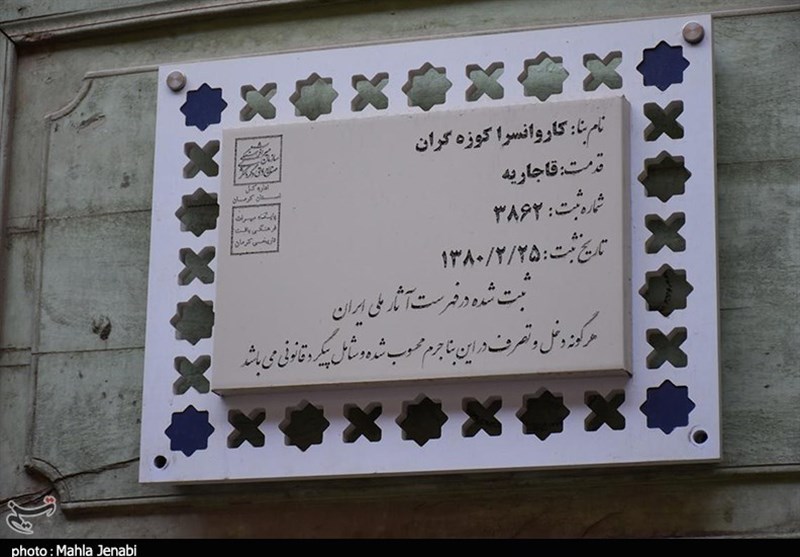 نام بنا: کاروانسرا کوزه گران
قدمت: قاجاریه
شماره ثبت: ۳۸۶۲
تاریخ ثبت: ۱۳۸۰/۲/۲۵
ثبت شده در فهرست آثار ملی ایران
هرگونه دخل و تصرف در این بنا جرم محسوب شده و شامل پیگرد قانونی می باشد
اداره کل
استان کرمان
پایگاه میراث
فرهنگی بافت
تاریخی کرمان
تسنیم
photo : Mahla Jenabi